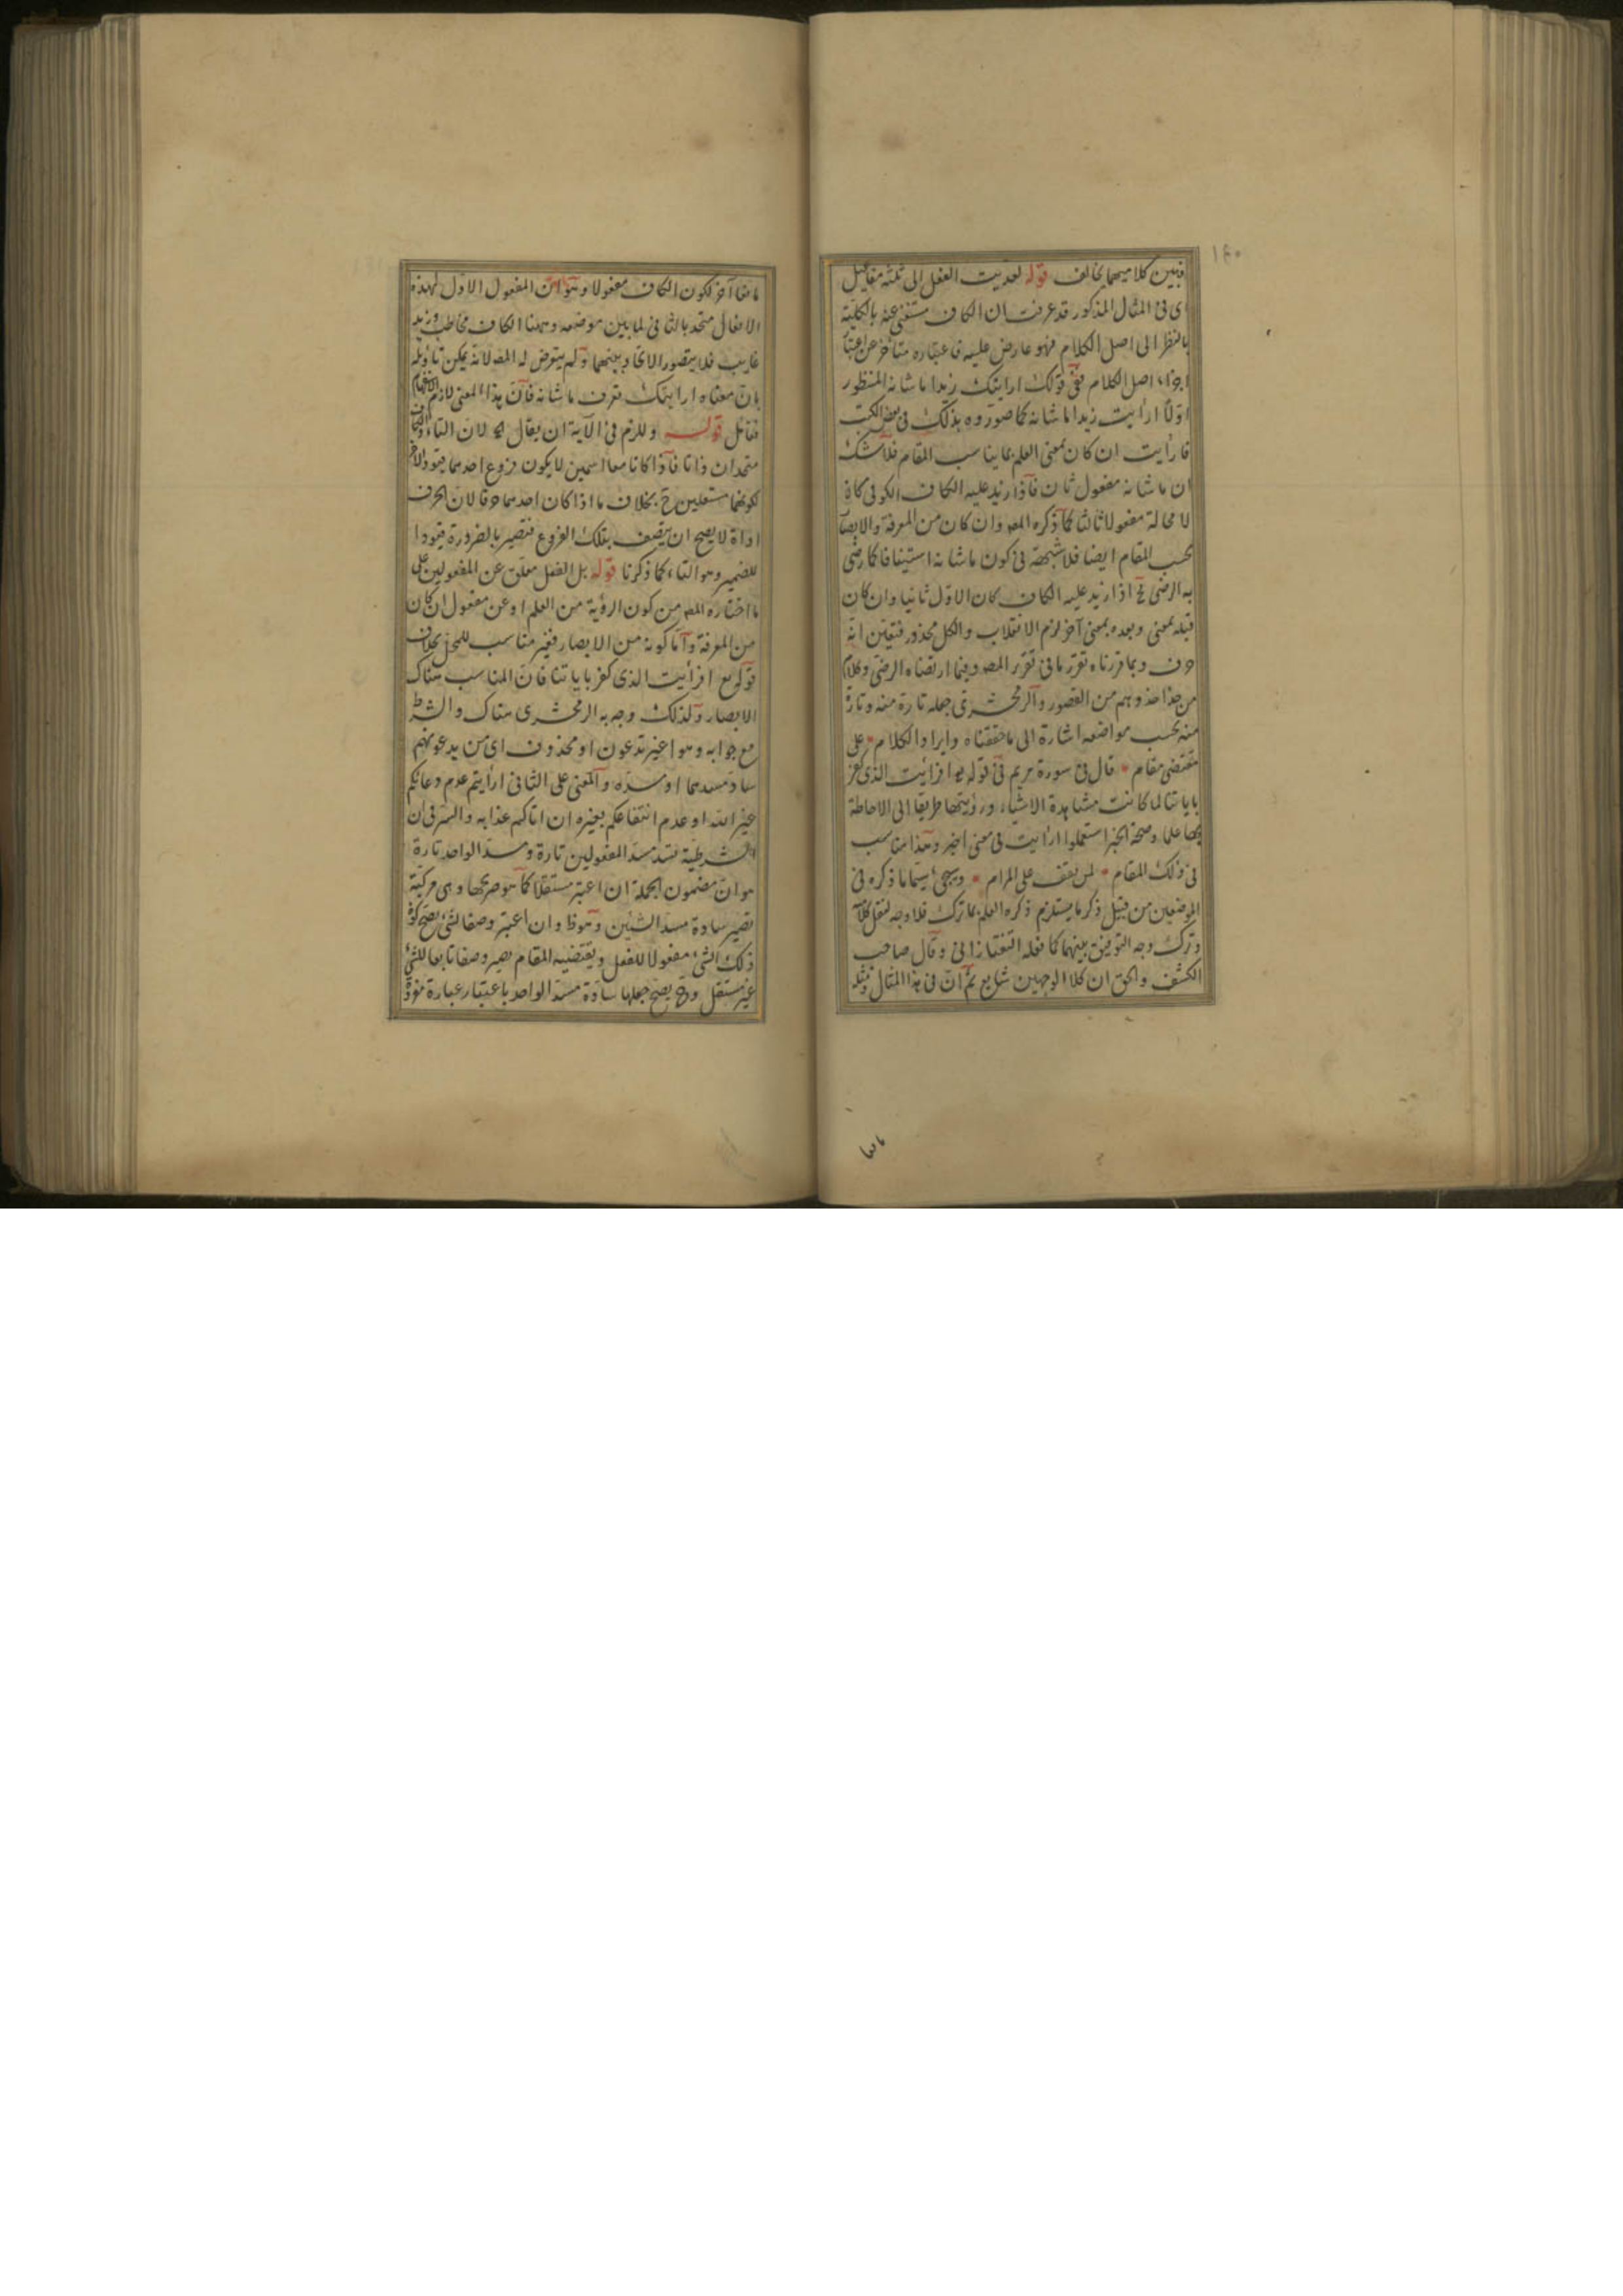 ١٤٠
فبين كلاميهما تخالف قوله لعديت الفعل الى ثلثة مفاعيل
اى فى المثال المذكور قد عرفت ان الكاف مستغنى عنه بالكلية
بالنظر الى اصل الكلام فهو عارض عليه فاعتباره متأخر عن اعتبار
اجزاء اصل الكلام ففى قولك ارايتك زيدا ما شانه المنظور
اولا ارأيت زيدا ما شانه كما صوروه بذلك فى بعض الكتب
فارأيت ان كان بمعنى العلم بما يناسب المقام فلا شك
ان ما شانه مفعول ثان فاذا زيد عليه الكاف الكوفى كان
لا محالة مفعولا ثالثا كما ذكره المص وان كان من المعرفة والابصار
بحسب المقام ايضا فلا شبهة فى كون ما شانه استينافا كما رضى
به الرضى فح اذا زيد عليه الكاف كان الاول ثانيا وان كان
قبله بمعنى وبعده بمعنى آخر لزم الانقلاب والكل محذور فتعين انه
حرف وبما قررناه تقرر ما فى تقرير المص وفيما ارتضاه الرضى وكلام
من حذا حذوهم من القصور والزمخشرى جعله تارة منه وتارة
منه بحسب مواضعه اشارة الى ما حققناه وايراد الكلام على
مقتضى مقام قال فى سورة مريم فى قوله تع افرأيت الذى كفر
باياتنا لما كانت مشاهدة الاشياء ورؤيتها طريقا الى الاحاطة
بها علما وصحة الخبر استعملوا ارأيت فى معنى اخبر وهذا مناسب
فى ذلك المقام لمن يقف على المرام ويجئ سيما ما ذكره فى
الموضعين من قبيل ذكر ما يستلزم ذكره العلم بما ترك فلا وجه لنقل كلامه
وترك وجه التوفيق بينهما كما فعله التفتازانى وقال صاحب
الكشف والحق ان كلا الوجهين شايع ثم ان فى هذا المثال ومثله
مانعا آخر لكون الكاف مفعولا وهو ان المفعول الاول لهذه
الافعال متحد بالثانى لما بين موضعه وههنا الكاف مخاطب وزيد
غايب فلا يتصور الاتحاد بينهما ولم يتعرض له المص لانه يمكن تأويله
بان معناه ارايتك تعرف ما شانه فان هذا المعنى لازم الافهام
فتأمل قوله وللزم فى الآية ان يقال لان التاء والكاف
متحدان ذاتا فاذا كانا معا اسمين لا يكون فروع احدهما قيود الاخر
لكونهما مستقلين ح بخلاف ما اذا كان احدهما حرفا لان الحرف
اداة لا يصح ان يتصف بتلك الفروع فتصير بالضرورة قيودا
للضمير وهو التاء كما ذكرنا قوله بل الفعل معلق عن المفعولين على
ما اختاره المص من كون الرؤية من العلم او عن مفعول ان كان
من المعرفة واما كونه من الابصار فغير مناسب للمحل بخلاف
قوله تع افرأيت الذى كفر باياتنا فان المناسب هناك
الابصار ولذلك وجه به الزمخشرى هناك والشرط
مع جوابه وهو اغير تدعون او محذوف اى من يدعونهم
ساد مسدهما او مسده والمعنى على الثانى ارأيتم عدم دعائكم
غير الله او عدم انتفاعكم بغيره ان اتاكم عذابه والسر فى ان
الشرطية تسد مسد المفعولين تارة ومسد الواحد تارة
هو ان مضمون الجملة ان اعتبر مستقلا كما هو صريحها وهى مركبة
تصير سادة مسد الشيئين وهو ظ وان اعتبر وصفا لشئ يصح كون
ذلك الشئ مفعولا للفعل ويقتضيه المقام يصير وصفا تابعا للشئ
غير مستقل وح يصح جعلها سادة مسد الواحد باعتبار عبارة مؤدة
مانعا